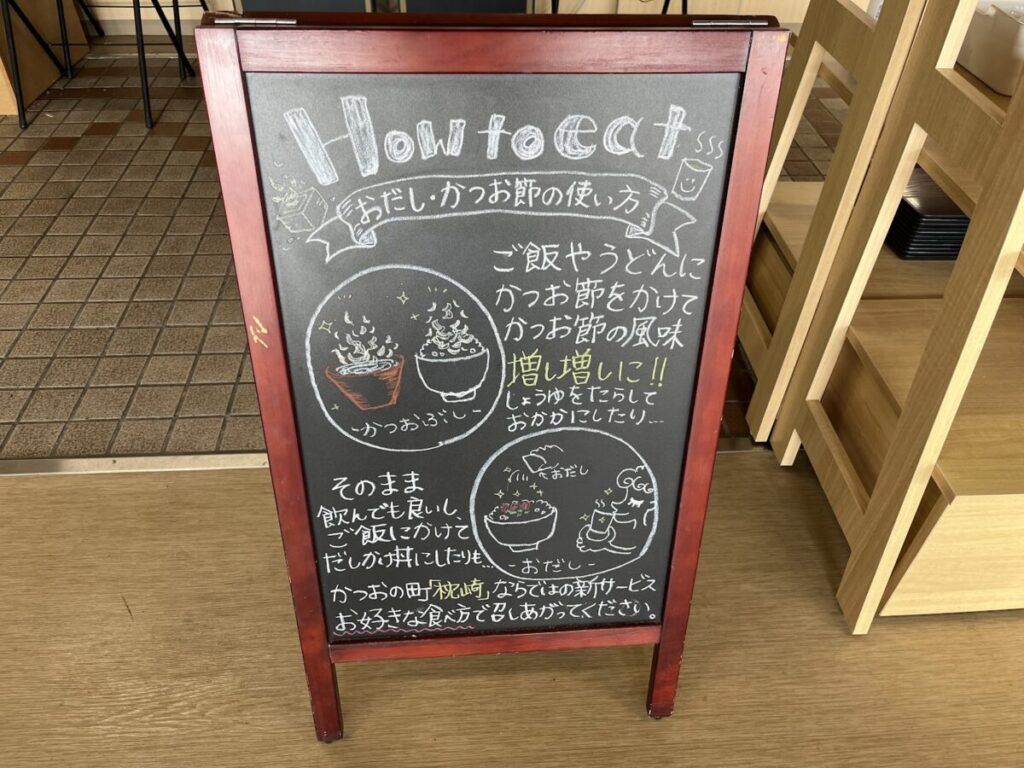 How to eat
おだし・かつお節の使い方
ご飯やうどんに
かつお節をかけて
かつお節の風味
増し増しに!!
しょうゆをたらして
おかかにしたり…
-かつおぶし-
そのまま
飲んでも良いし、
ご飯にかけて
だしかけ丼にしたりも…
おだし
-おだし-
かつおの町「枕崎」ならではの新サービス
お好きな食べ方で召しあがってください。